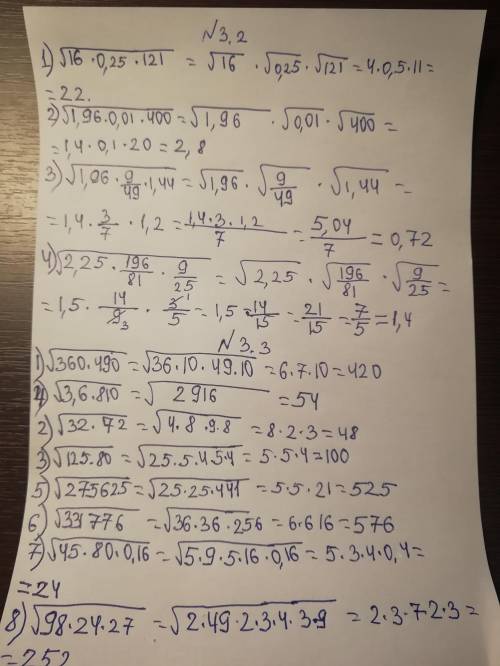 №3.2
1) √16·0,25·121 = √16 · √0,25 · √121 = 4·0,5·11 =
= 22.
2) √1,96·0,01·400 = √1,96 · √0,01 · √400 =
= 1,4·0,1·20 = 2,8
3) √1,06·9/49·1,44 = √1,96 · √9/49 · √1,44 =
= 1,4·3/7·1,2 = 1,4·3·1,2/7 = 5,04/7 = 0,72
4) √2,25·196/81·9/25 = √2,25 · √196/81 · √9/25 =
= 1,5·14/9 3·3 1/5 = 1,5·14/15 = 21/15 = 7/5 = 1,4
№3.3
1) √360·490 = √36·10·49·10 = 6·7·10 = 420
4) √3,6·810 = √2916 = 54
2) √32·72 = √4·8·9·8 = 8·2·3 = 48
3) √125·80 = √25·5·4·5·4 = 5·5·4 = 100
5) √275625 = √25·25·441 = 5·5·21 = 525
6) √331776 = √36·36·256 = 6·6·16 = 576
7) √45·80·0,16 = √5·9·5·16·0,16 = 5·3·4·0,4 =
= 24
8) √98·24·27 = √2·49·2·3·4·3·9 = 2·3·7·2·3 =
= 252